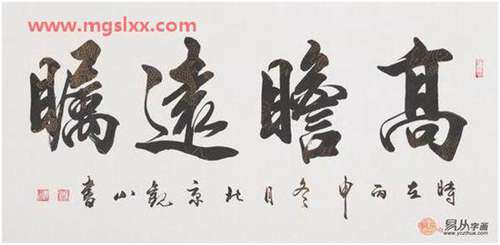 www.mgslxx.com
高瞻遠矚
時在丙申冬月北京觀山書
易从字画
www.yczihua.com